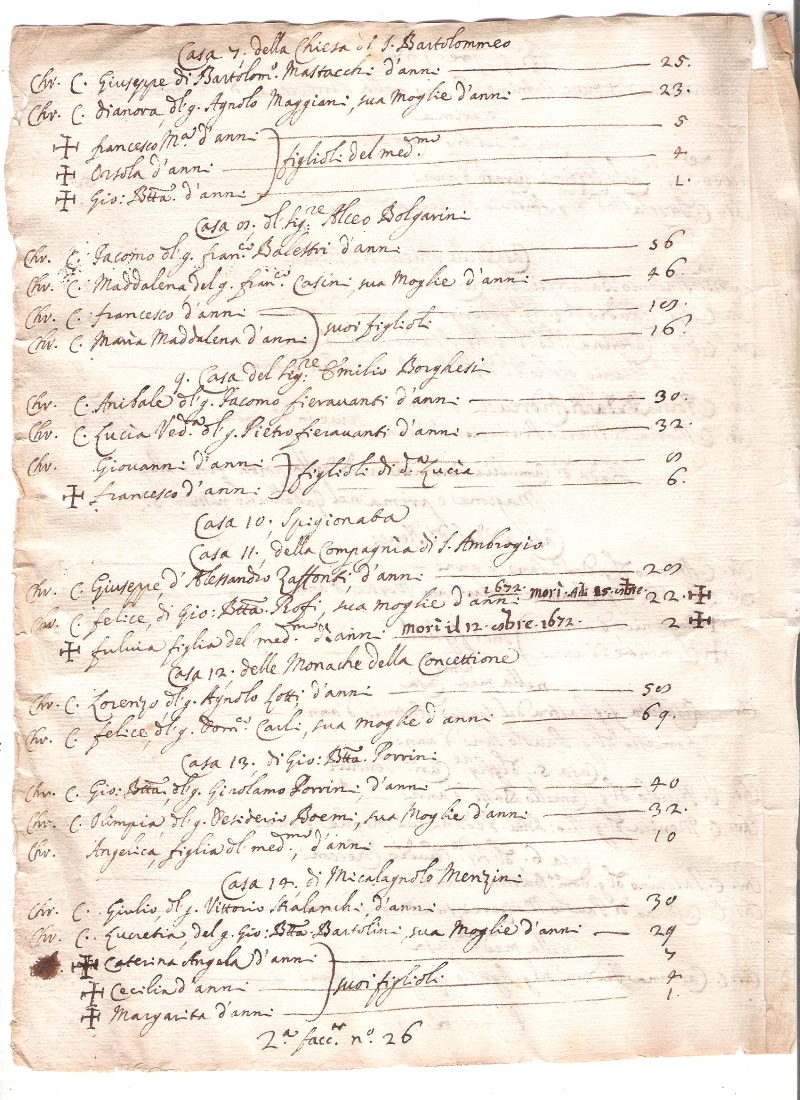 Casa 7. della Chiesa di S. Bartolommeo
Chr. C. Giuseppe di Bartolom.º Mastacchi d'anni 25.
Chr. C. Dianora, dl g. Agnolo Maggiani, sua Moglie d'anni 23.
francesco M.ª d'anni 5
Orsola d'anni figlioli del med.mo 4
Gio: Btta. d'anni 1.
Casa 8. dl sig.re Alceo Bolgarini
Chr. C. Jacomo dl g. fran.co Balestri d'anni 56
Chr. C. Maddalena del g. fran.co Casini, sua Moglie d'anni 46.
Chr. C. francesco d'anni 18
Chr. C. Maria Maddalena d'anni suoi figlioli 16.
9. Casa del Sig.re Emilio Borghesi
Chr. C. Anibale dl g. Jacomo fieravanti d'anni 30.
Chr. C. Lucia Ved.ª dl g. Pietro fieravanti d'anni 32.
Chr. Giovanni d'anni figlioli di d.ª Lucia 8
francesco d'anni 6.
Casa 10. Spigionata
Casa 11. della Compagnia di S. Ambrogio
Chr. C. Giuseppe, d'Alessandro Zaffonti, d'anni 28
Chr. C. felice, di Gio: Btta. Rofi, sua moglie d'anni 1672. morì Adi 25 22.
fulvia figlia del med.mo di anni morì il 12. 8bre. 1672. 2
Casa 12. delle Monache della Concettione
Chr. C. Lorenzo dl g. Agnolo Lotti, d'anni 58
Chr. C. felice, dl g. Dom.co Carli, sua moglie d'anni 69.
Casa 13. di Gio: Btta. Porrini
Chr. C. Gio: Btta. dl g. Girolamo Porrini, d'anni 40
Chr. C. Olimpia, dl g. Desiderio Boemi, sua Moglie d'anni 32.
Chr. Angelica, figlia dl med.mo, d'anni 10
Casa 14. di Micalagnolo Menzini
Chr. C. Giulio, dl g. Vittorio Skalanchi, d'anni 30
Chr. C. Lucretia, del g. Gio: Btta. Bartolini, sua Moglie d'anni 29
Caterina Angela d'anni 7
Cecilia d'anni suoi figlioli 4
Margarita d'anni 1.
2.ª facc. n.º 26